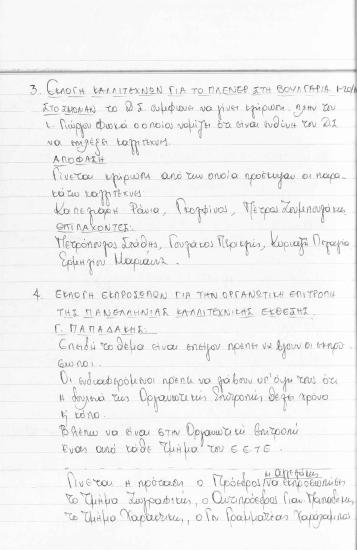 3. ΕΚΛΟΓΗ ΚΑΛΛΙΤΕΧΝΩΝ ΓΙΑ ΤΟ ΠΛΕΝΕΡ ΣΤΗ ΒΟΥΛΓΑΡΙΑ
ΣΤΟ ΣΜΟΛΙΑΝ. το Δ.Σ. συμφωνει να γίνει κλήρωση. πλην του
κ. Γιώργου ο οποίος νομίζει ότι είναι ευθύνη του ΔΣ
να επιλέξει καλλιτέχνες.
ΑΠΟΦΑΣΗ
Γίνεται κλήρωση από την οποία προέκυψαν οι παρα-
κάτω καλλιτέχνες:
Καπερώνη Ράνια, Γκολφίνος, Πέτρος Ζουμπουλάκης
ΕΠΙΛΑΧΟΝΤΕΣ:
Πετρόπουλος Στάθης, Γουλάκος Περικλής, Κυριαζή Πελαγία
Μαριάννα
4. ΕΚΛΟΓΗ ΕΚΠΡΟΣΩΠΩΝ ΓΙΑ ΤΗΝ ΟΡΓΑΝΩΤΙΚΗ ΕΠΙΤΡΟΠΗ
ΤΗΣ ΠΑΝΕΛΛΗΝΙΑΣ ΚΑΛΛΙΤΕΧΝΙΚΗΣ ΕΚΘΕΣΗΣ.
Γ. ΠΑΠΑΔΑΚΗΣ:
Επειδή το θέμα είναι επείγον πρέπει να βγουν οι εκπρό-
σωποι.
Οι ενδιαφερόμενοι πρέπει να λάβουν υπ' όψη τους ότι
η δουλειά της Οργανωτικής Επιτροπής θέλει χρόνο
κ' κόπο.
Βλέπω να είναι στην Οργανωτική Επιτροπή
ένας από κάθε Τμήμα του ΕΕΤΕ.
Γίνεται η πρόταση ο Πρόεδρος να εκπροσωπήσει
το Τμήμα Ζωγραφικής, ο Αντιπρόεδρος Γιαν. Παπαδάκης
το Τμήμα Χαρακτικής, ο Γεν Γραμματέας Χαράλαμπος